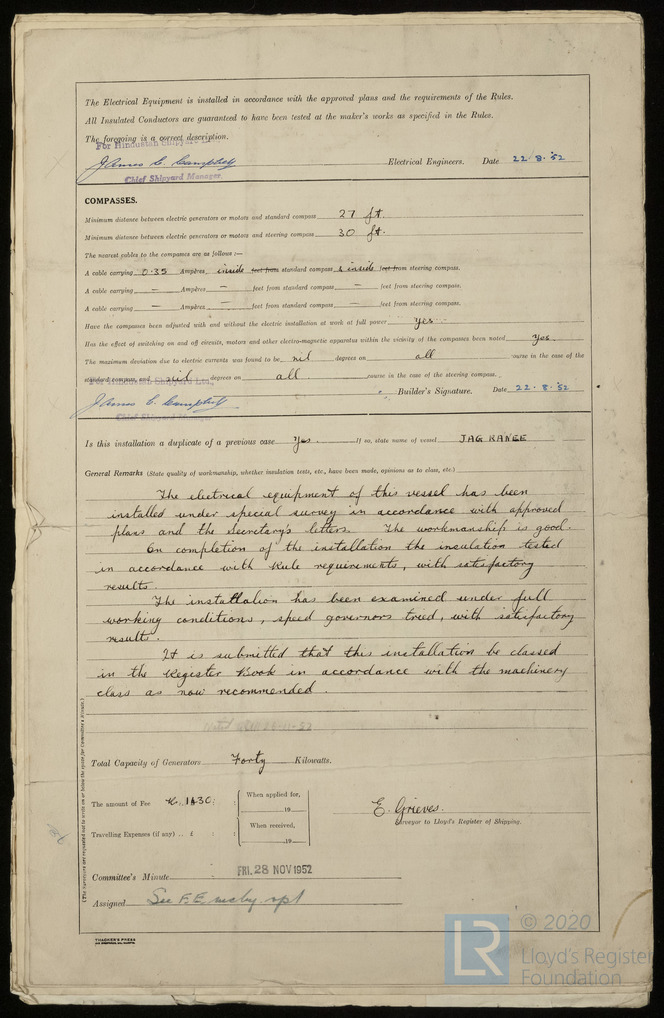 The Electrical Equipment is installed in accordance with the approved plans and the requirements of the Rules.
All Insulated Conductors are guaranteed to have been tested at the maker's works as specified in the Rules.
The foregoing is a correct description.
For Hindustan Shipyard Ltd.,
James C. Campbell Electrical Engineers. Date 22/8.'52
Chief Shipyard Manager.
COMPASSES.
Minimum distance between electric generators or motors and standard compass 27 ft.
Minimum distance between electric generators or motors and steering compass 30 ft.
The nearest cables to the compasses are as follows :—
A cable carrying 0.35 Ampères inside feet from standard compass & inside feet from steering compass.
A cable carrying — Ampères — feet from standard compass — feet from steering compass.
A cable carrying — Ampères — feet from standard compass — feet from steering compass.
Have the compasses been adjusted with and without the electric installation at work at full power yes
Has the effect of switching on and off circuits, motors and other electro-magnetic apparatus within the vicinity of the compasses been noted yes.
The maximum deviation due to electric currents was found to be nil degrees on all course in the case of the
standard compass, and nil degrees on all course in the case of the steering compass.
For Hindustan Shipyard Ltd.,
James C. Campbell Builder's Signature. Date 22.8.'52
Chief Shipyard Manager
Is this installation a duplicate of a previous case Yes. If so, state name of vessel JAG RANEE
General Remarks (State quality of workmanship, whether insulation tests, etc., have been made, opinions as to class, etc.)
The electrical equipment of this vessel has been
installed under special survey in accordance with approved
plans and the Secretary's letters. The workmanship is good.
On completion of the installation the insulation tested
in accordance with Rule requirements, with satisfactory
results.
The installation has been examined under full
working conditions, speed governors tried, with satisfactory
results.
It is submitted that this installation be classed
in the Register Book in accordance with the machinery
class as now recommended.
Total Capacity of Generators Forty Kilowatts.
The amount of Fee
When applied for,
19
Travelling Expenses (if any) .. £ : :
When received,
19
E. Grieves.
Surveyor to Lloyd's Register of Shipping.
Committee's Minute FRI. 28 NOV 1952
Assigned See F.E. rpt
(The Surveyors are requested not to write on or below the space for Committee's Minute.)
THACKER'S PRESS
© 2020
LR
Lloyd's Register
Foundation